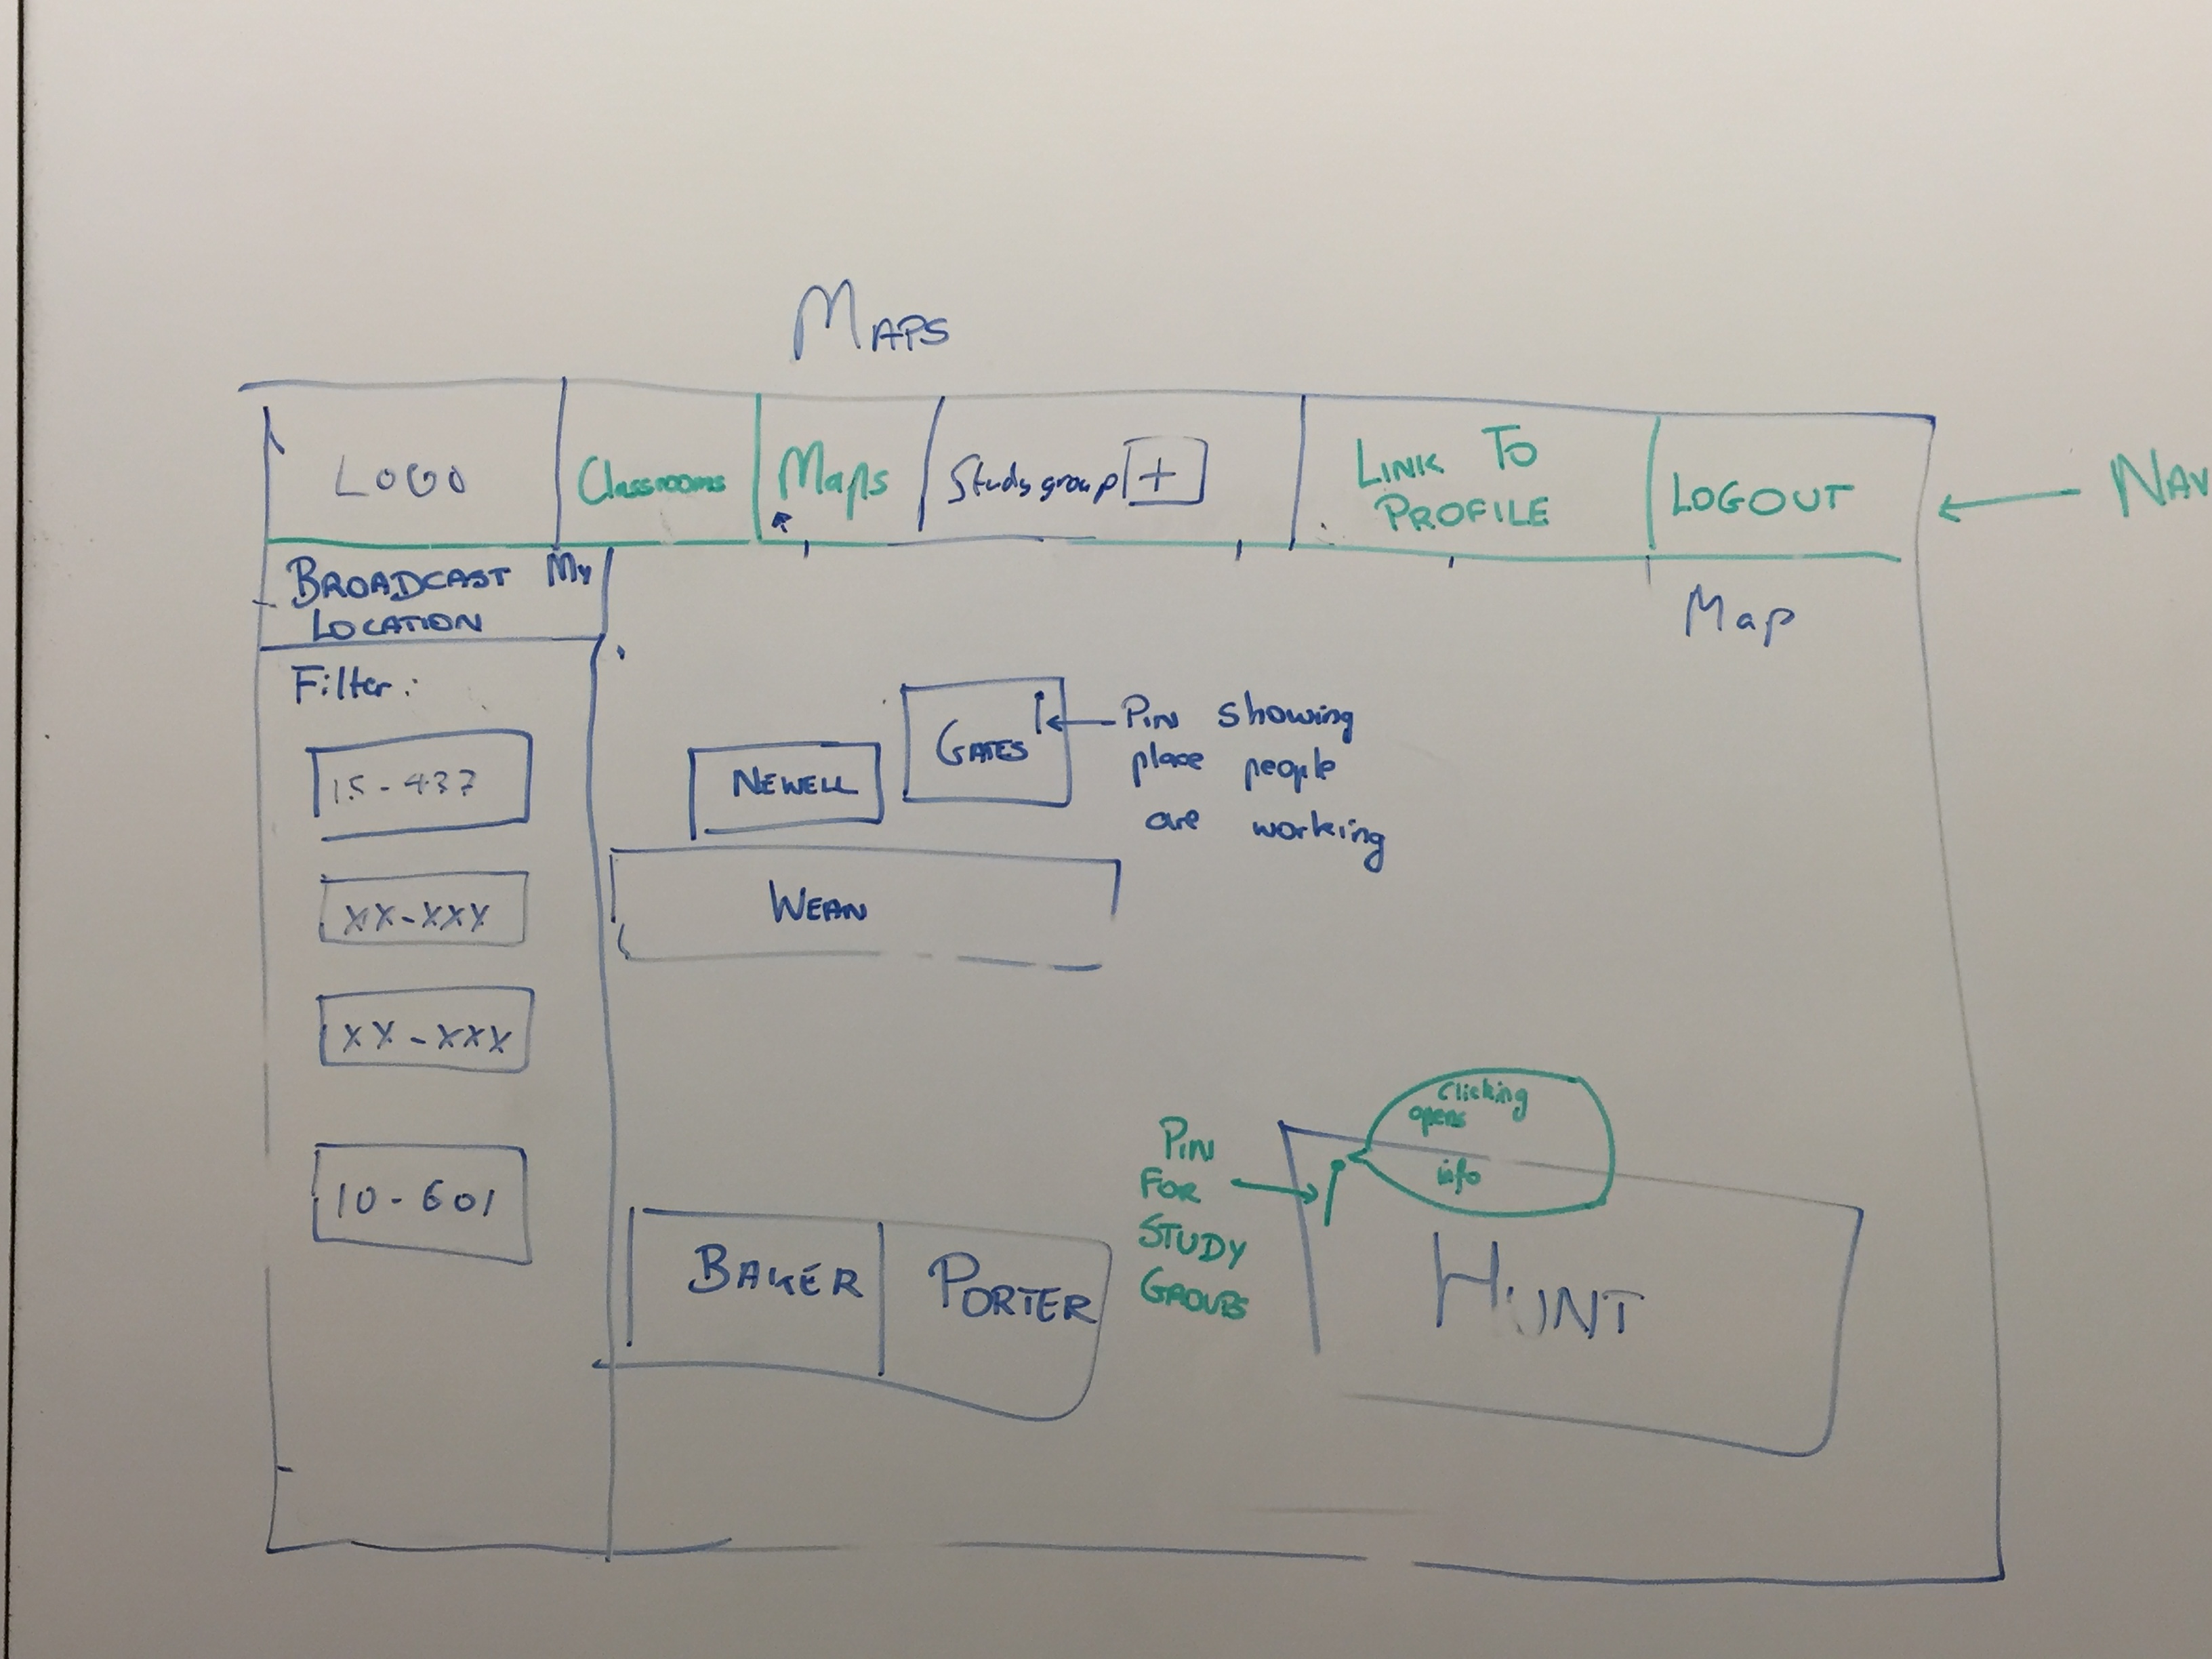 MAPS
LOGO
Classrooms
Maps
Study group +
LINK TO
PROFILE
LOGOUT
NAV
BROADCAST My
LOCATION
Map
Filter:
15-437
XX-XXX
XX-XXX
10-601
NEWELL
GATES
PIN showing
place people
are working
WEAN
BAKER
PORTER
PIN
FOR
STUDY
GROUPS
Clicking
opens
info
HUNT